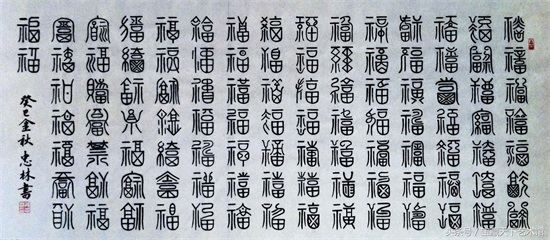 福福福福福福福
福福福福福福福
福福福福福福福
福福福福福福福
福福福福福福福
福福福福福福福
福福福福福福福
福福福福福福福
福福福福福福福
福福福福福福福
福福福福福福福
福福福福福福福
福福福福福福福
福福福福福福福
福福
癸巳金秋忠林書